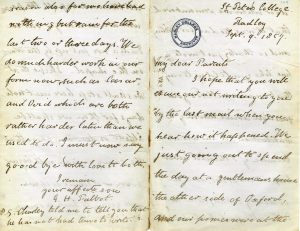 St Peters College
Radley
Sept. 9th 1859
My dear Parents
I hope that you will
excuse our not writing to you
by the last mail when you
hear how it happened. We
just going out to spend
the day at a gentlemans house
the other side of Oxford,
and our promise were at the
with us but rain for the
last two or three days. We
do much harder work in our
form now, such as Livy
and Ovid which are both
rather harder latin than we
used to do. I must now say
good bye with love to both
I remain
your affecte son
G. H. Talbot
P.S. Charley told me to tell you that
he has not had time to write.